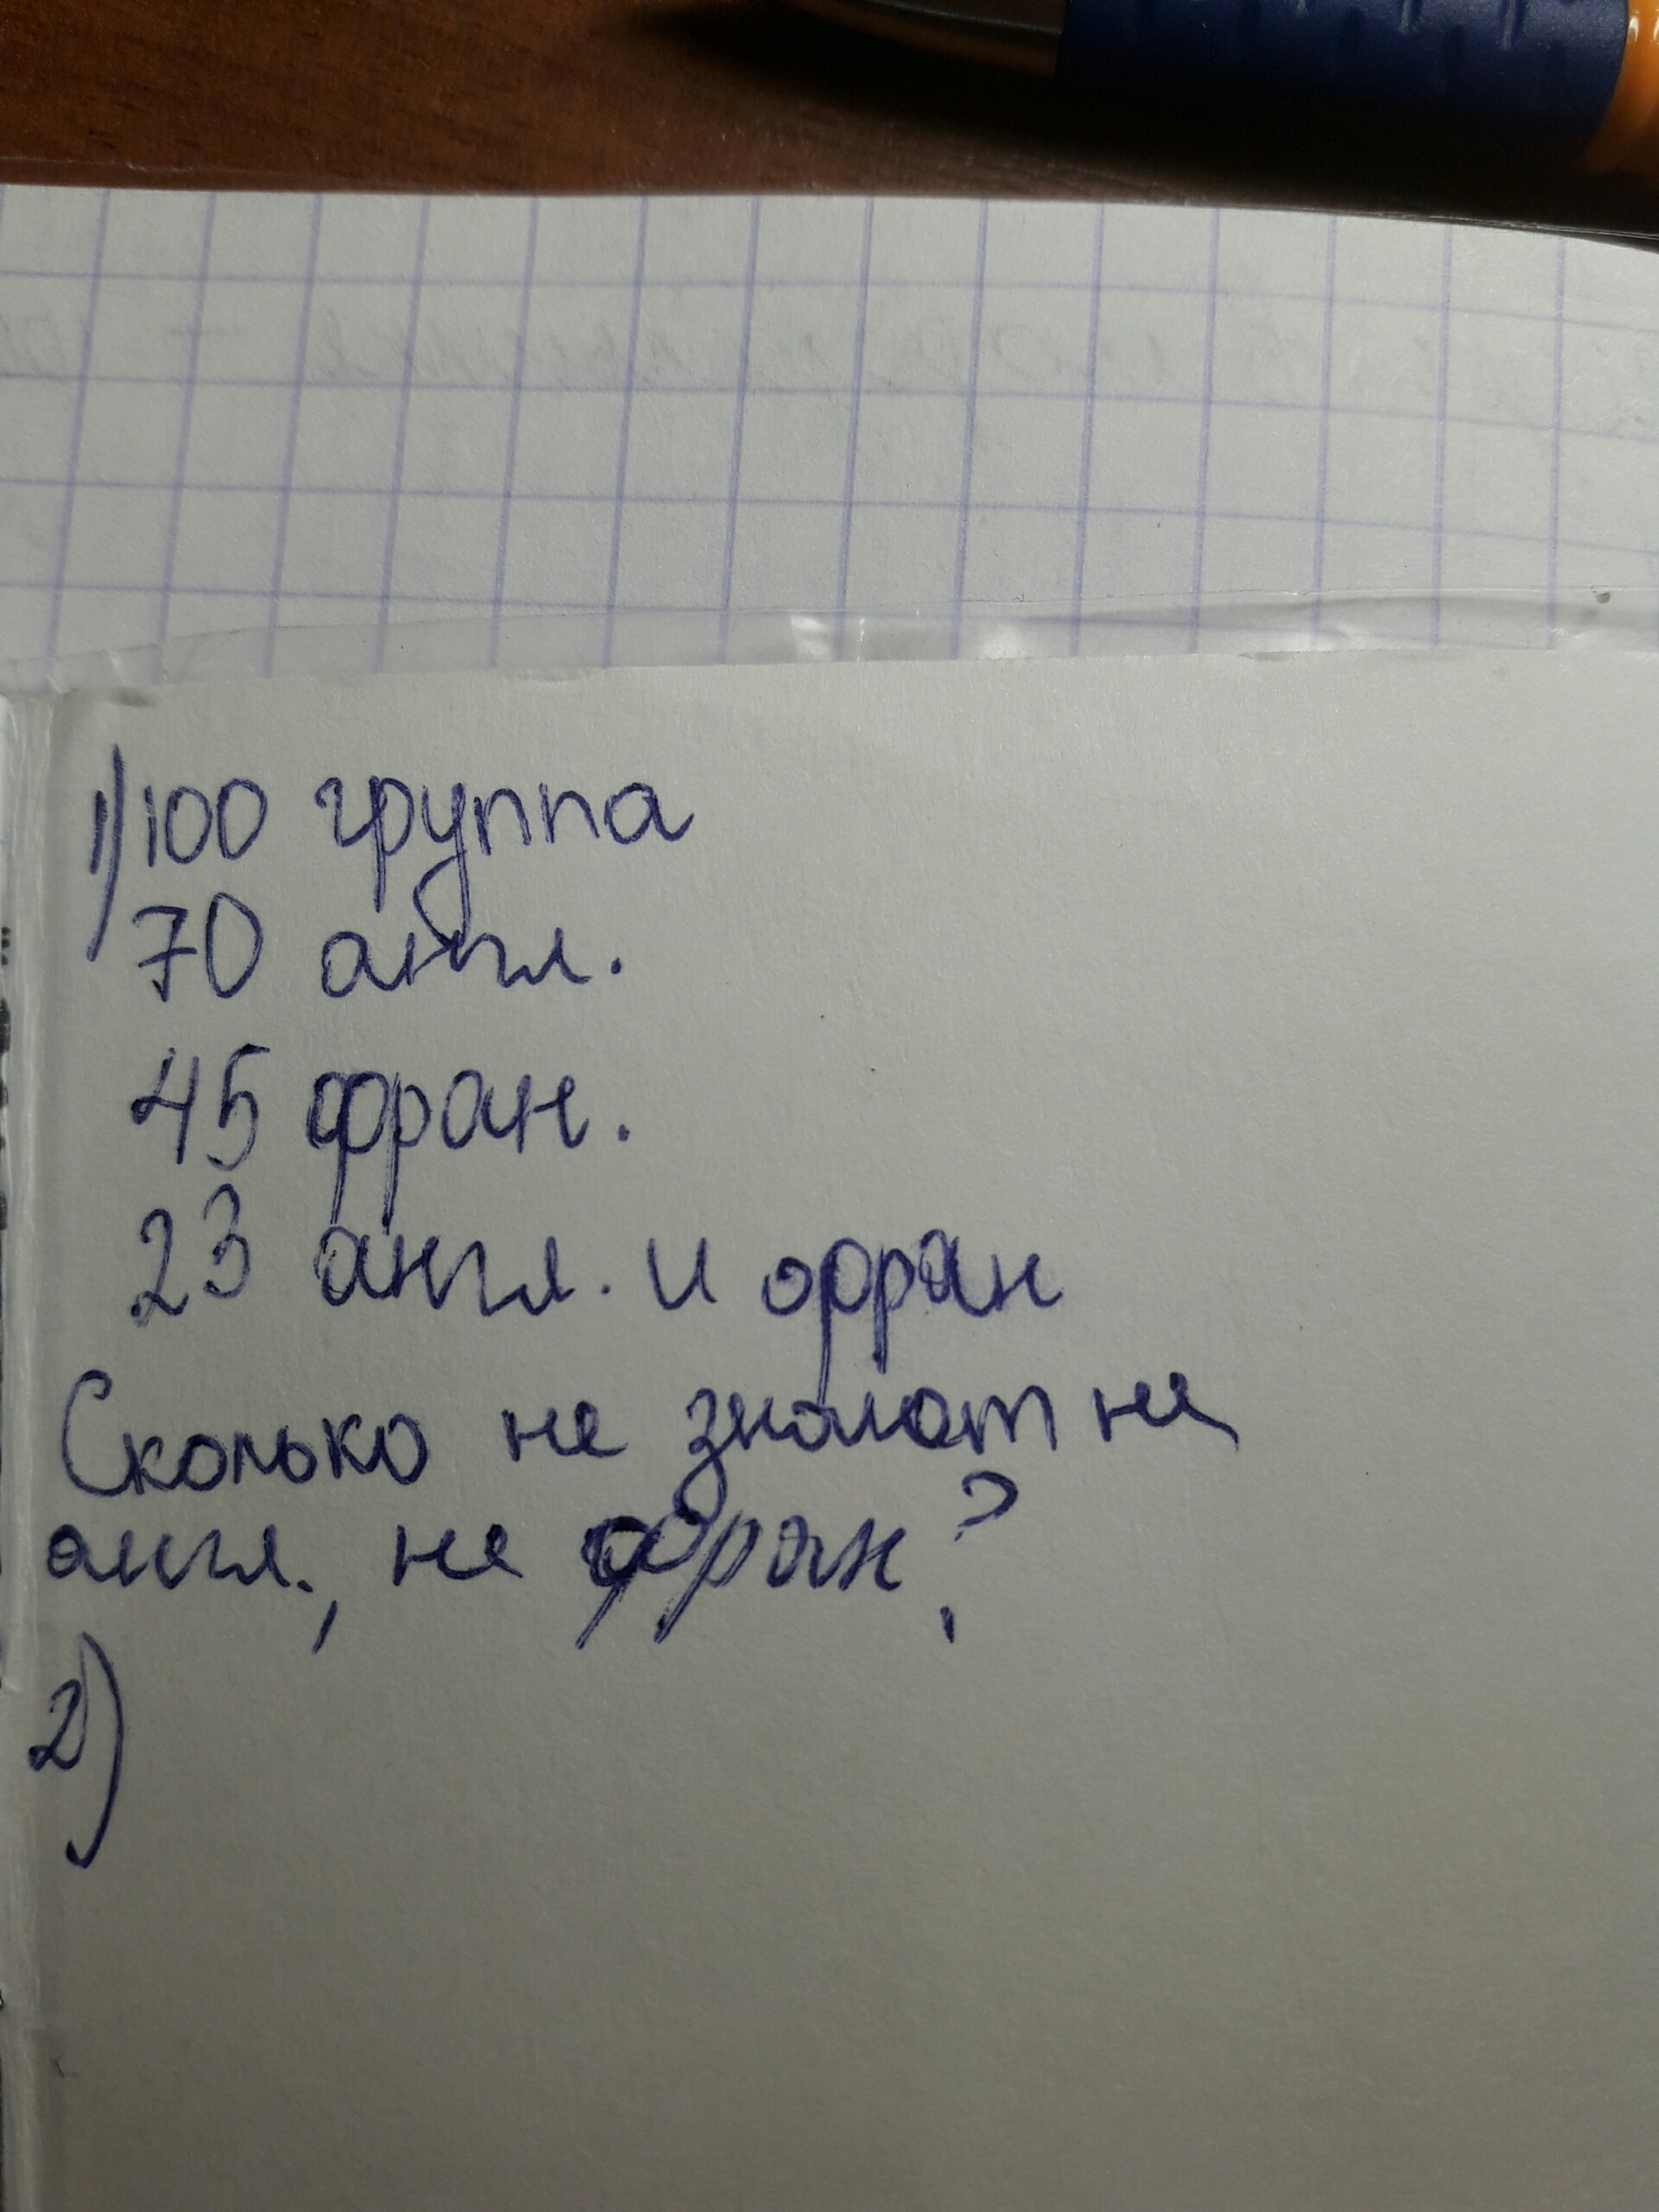 1) 100 группа
70 англ.
45 фран.
23 англ. и фран
Сколько не знают не
англ., не фран?
2)